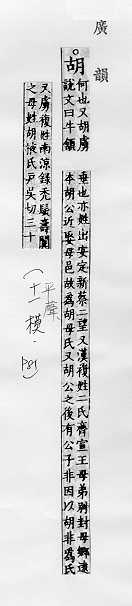 廣韻
胡
何也又胡虜
說文曰牛頷
垂也亦姓出安定新蔡二望又漢複姓二氏齊宣王母弟別封母鄉遠
本胡公近娶母邑故為胡母氏又胡公之後有公子非因以胡非為氏
又虜複姓南涼錄禿髮壽闐
之母姓胡掖氏戶吳切三十
(平聲
十一模.
P81)